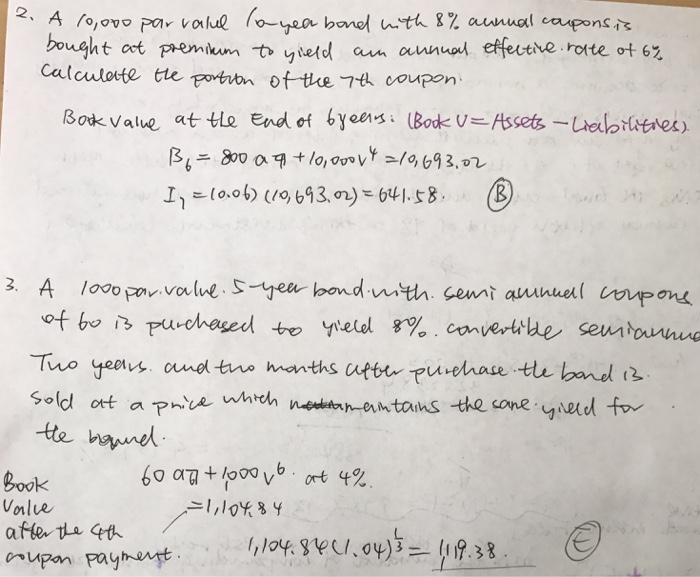 2. A 10,000 par value 10-year bond with 8% annual coupons is
bought at premium to yield an annual effective rate of 6%
Calculate the portion of the 7th coupon.
Book value at the End of 6 years: (Book V = Assets - Liabilities)
B₆ = 800 a 4̅| + 10,000 v⁴ = 10,693.02
I₇ = (0.06) (10,693.02) = 641.58. (B)
3. A 1000 par value. 5-year bond with semi annuall coupons
of 60 is purchased to yield 8%. convertible semiannua
Two years. and two months after purchase the bond is.
Sold at a price which maintains the same yield for
the
Book 60 a 6̅| + 1,000 v⁶. at 4%.
Value = 1,104.84
after the 4th
coupon payment. 1,104.84 (1.04)^⅓ = 1,119.38. (E)